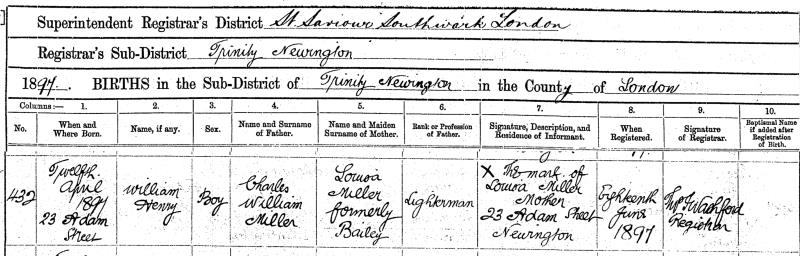 Superintendent Registrar's District St Saviour Southwark London
Registrar's Sub-District Trinity Newington
1897. BIRTHS in the Sub-District of Trinity Newington in the County of London
Columns:— 1. 2. 3. 4. 5. 6. 7. 8. 9. 10.
No. When and Where Born. Name, if any. Sex. Name and Surname of Father. Name and Maiden Surname of Mother. Rank or Profession of Father. Signature, Description, and Residence of Informant. When Registered. Signature of Registrar. Baptismal Name if added after Registration of Birth.
432
Twelfth
April
1897
23 Adam
Street
William
Henry
Boy
Charles
William
Miller
Louisa
Miller
formerly
Bailey
Lighterman
X The mark of
Louisa Miller
Mother
23 Adam Street
Newington
Eighteenth
June
1897
Registrar